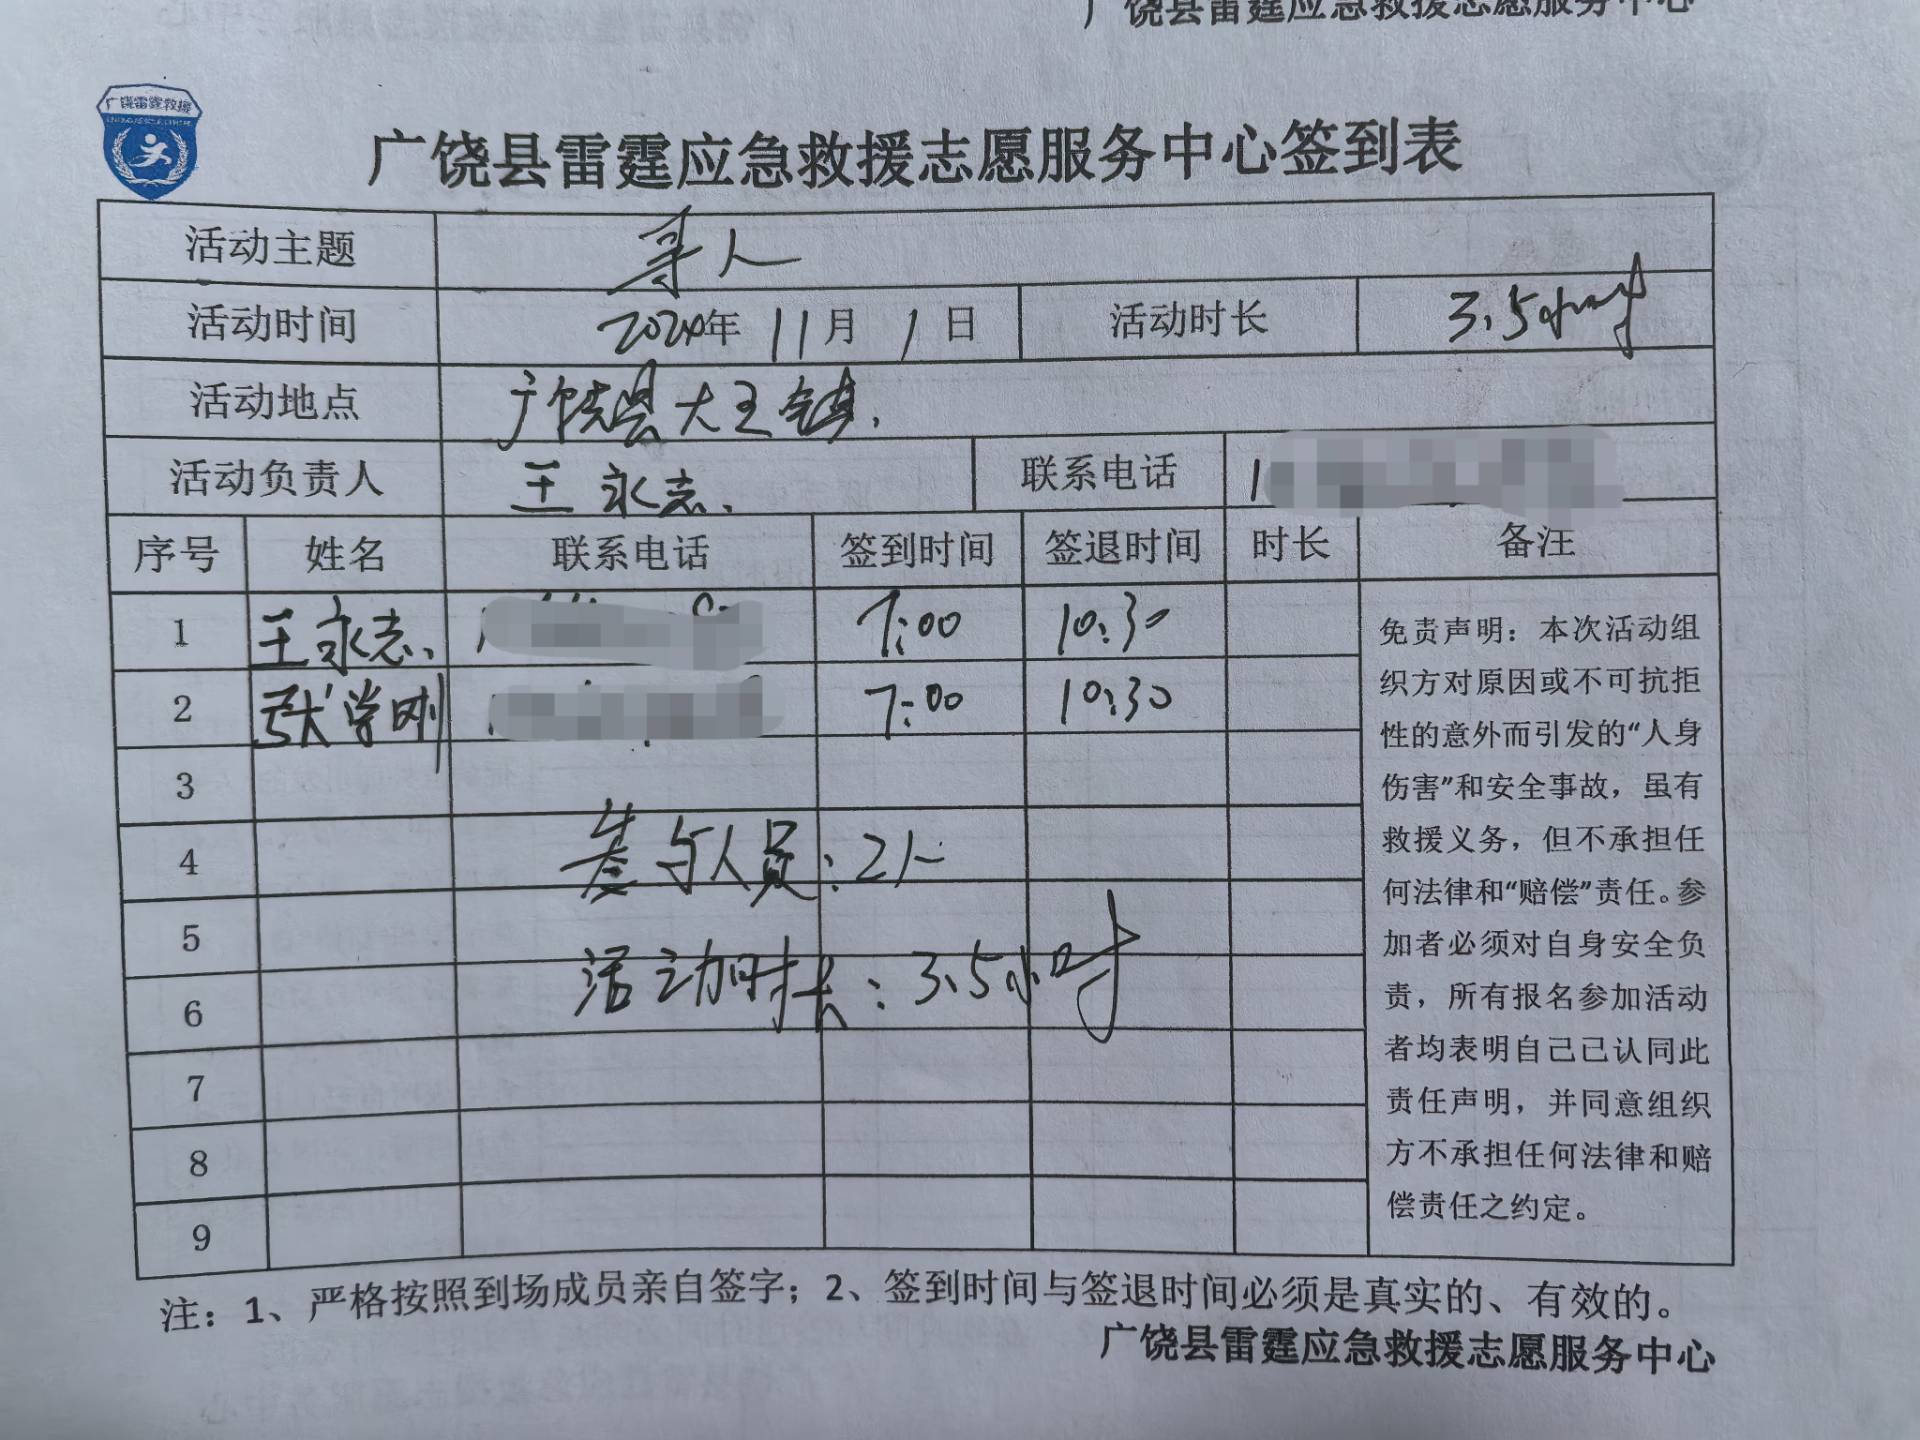 广饶县雷霆应急救援志愿服务中心
广饶雷霆救援
广饶县雷霆应急救援志愿服务中心签到表
活动主题 寻人
活动时间 2024年 11月 1日 活动时长 3.5小时
活动地点 广饶县大王镇.
活动负责人 王永志、 联系电话 1
序号 姓名 联系电话 签到时间 签退时间 时长 备注
1 王永志、 7:00 10:30
2 张学刚 7:00 10:30
3
4 参与人员:2人
5
6 活动时长:3.5小时
7
8
9
免责声明：本次活动组
织方对原因或不可抗拒
性的意外而引发的“人身
伤害”和安全事故，虽有
救援义务，但不承担任
何法律和“赔偿”责任。参
加者必须对自身安全负
责，所有报名参加活动
者均表明自己已认同此
责任声明，并同意组织
方不承担任何法律和赔
偿责任之约定。
注：1、严格按照到场成员亲自签字；2、签到时间与签退时间必须是真实的、有效的。
广饶县雷霆应急救援志愿服务中心